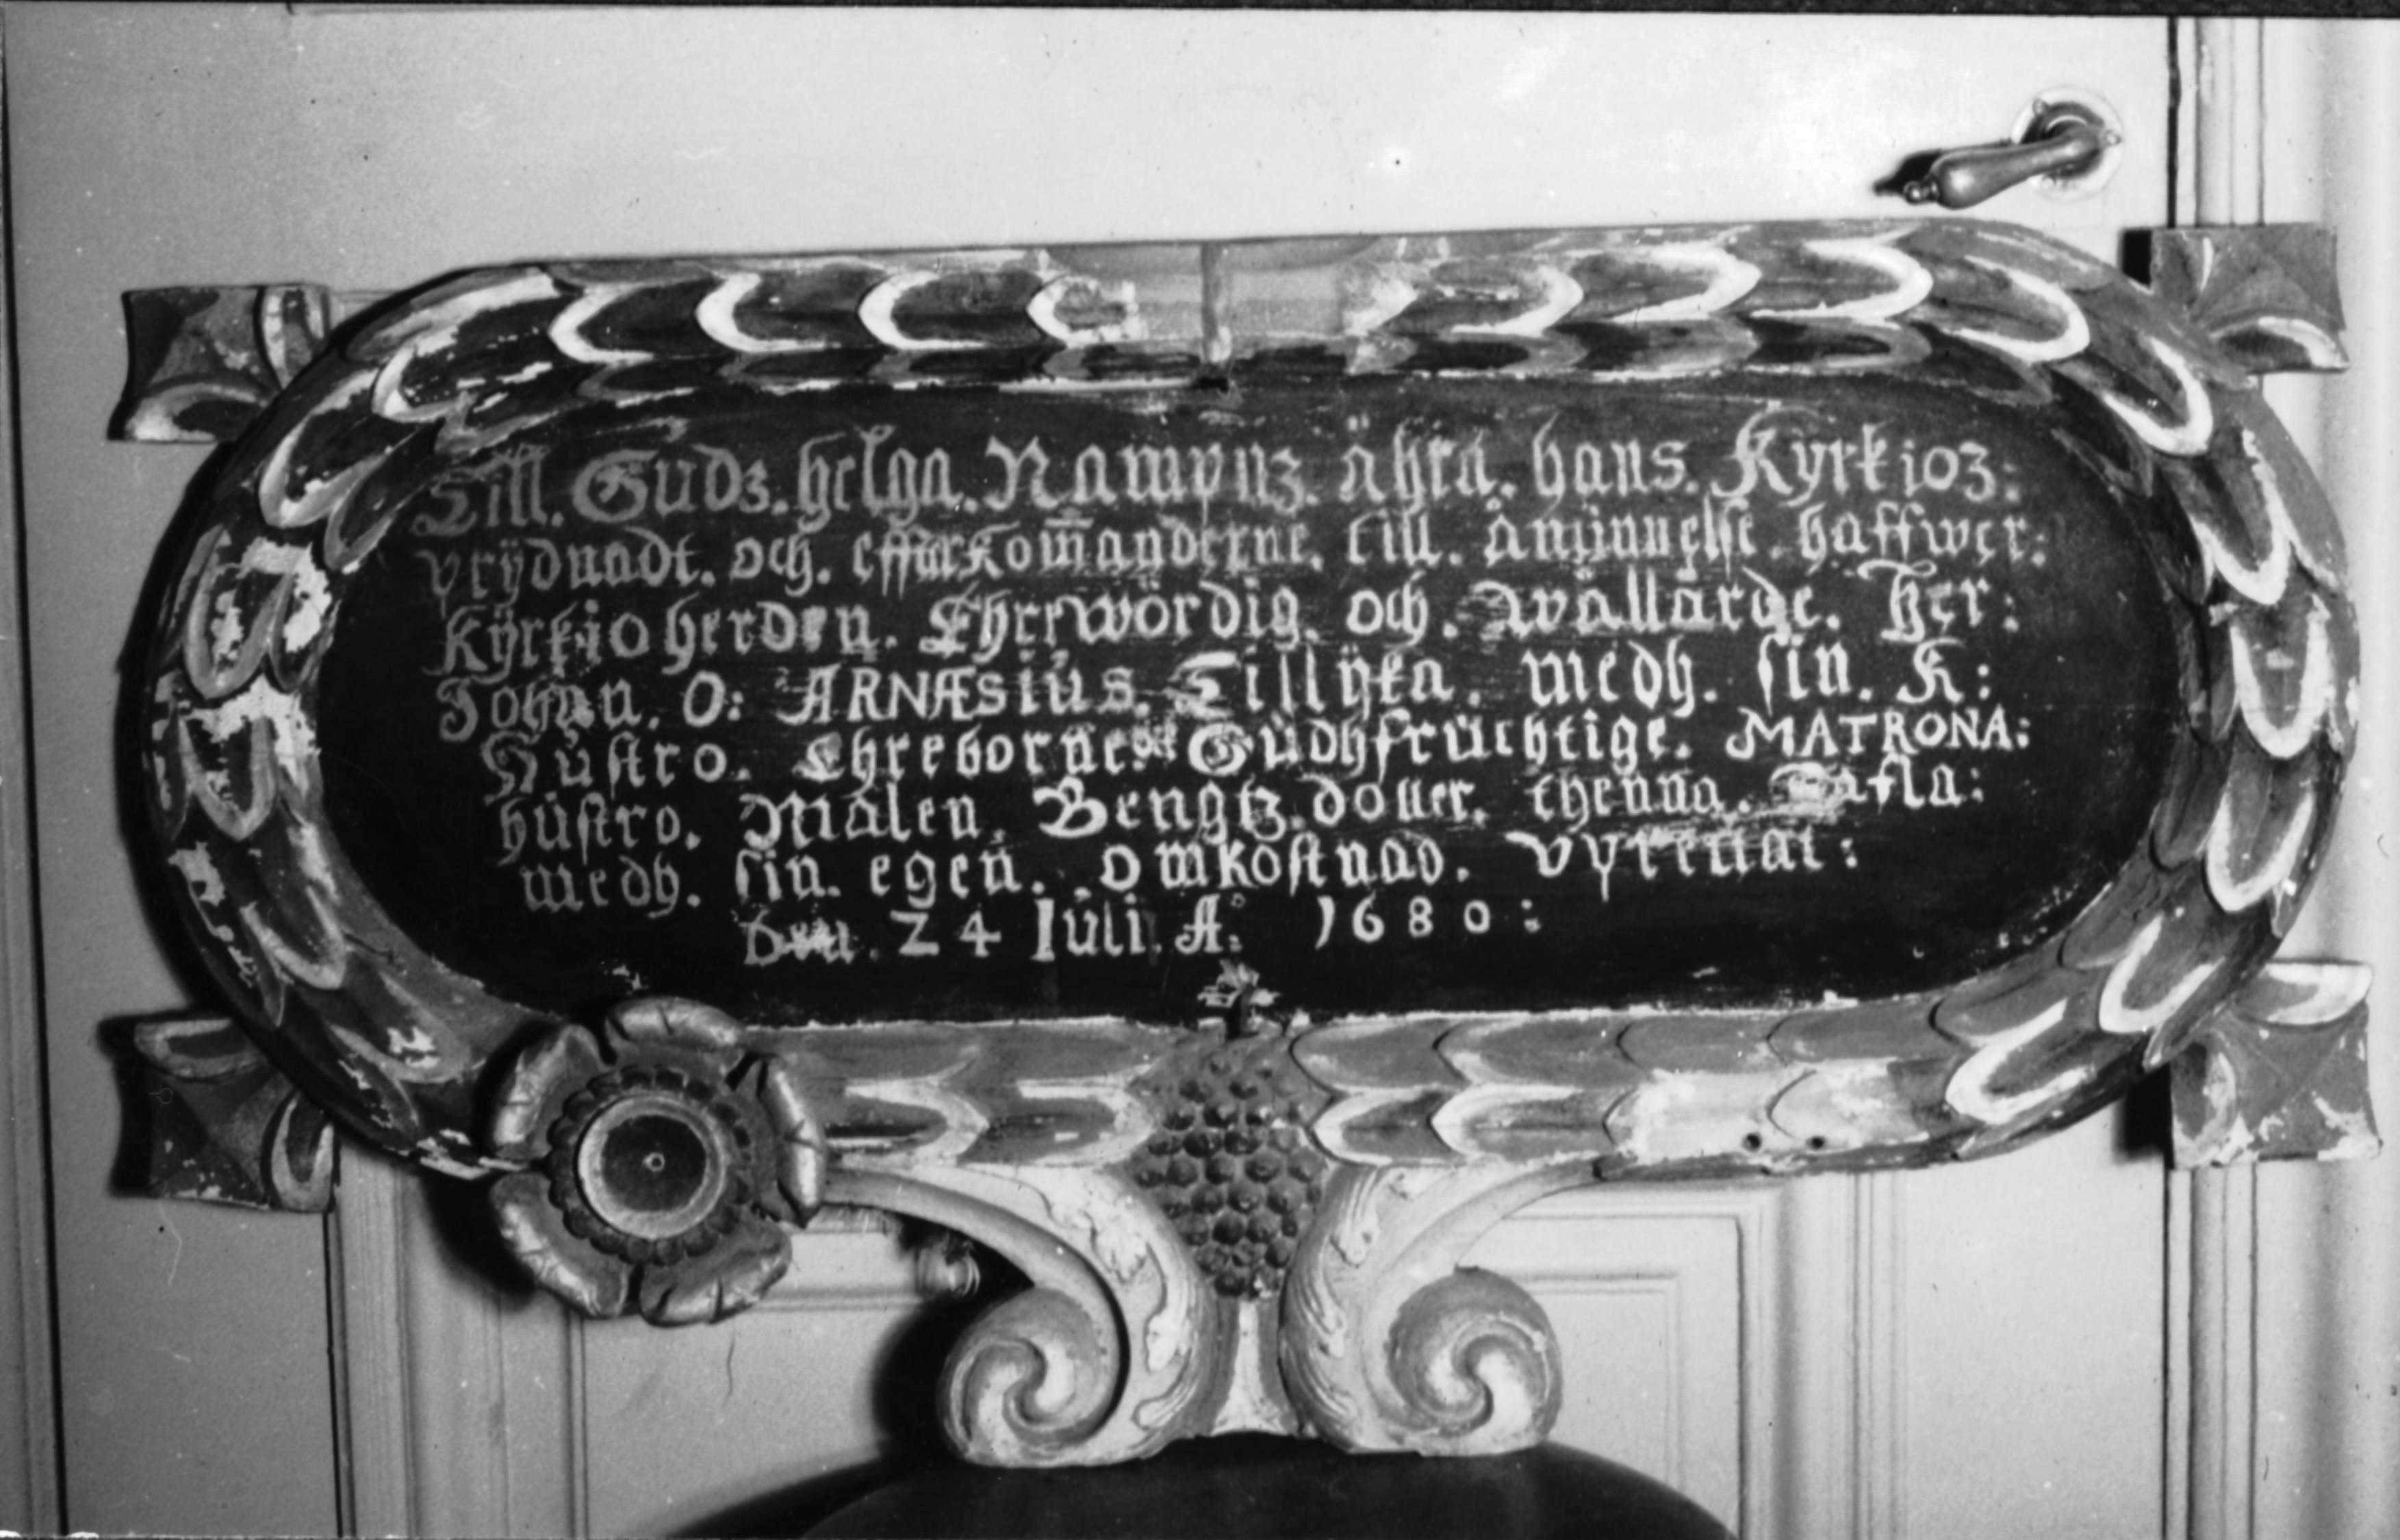 Till. Gudz. helga. Nampnz. ähra. hans. Kÿrkioz:
prÿdnadt. och. effterkom̃anderne. till. åminnelse. haffwer:
Kÿrkioherden. Ehrewördig. och. Wällärde. Her:
Johan. O: ARNÆSiús. Tillÿka. medh. sin. K:
Hústro. Ehreborne. och Gúdhfrúchtige. MATRONA:
hústro. Malen. Bengtz. dotter. thenna. Tafla:
medh. sin. egen. omkostnad. vprettat:
Den. 24 Iúli. A: 1680: